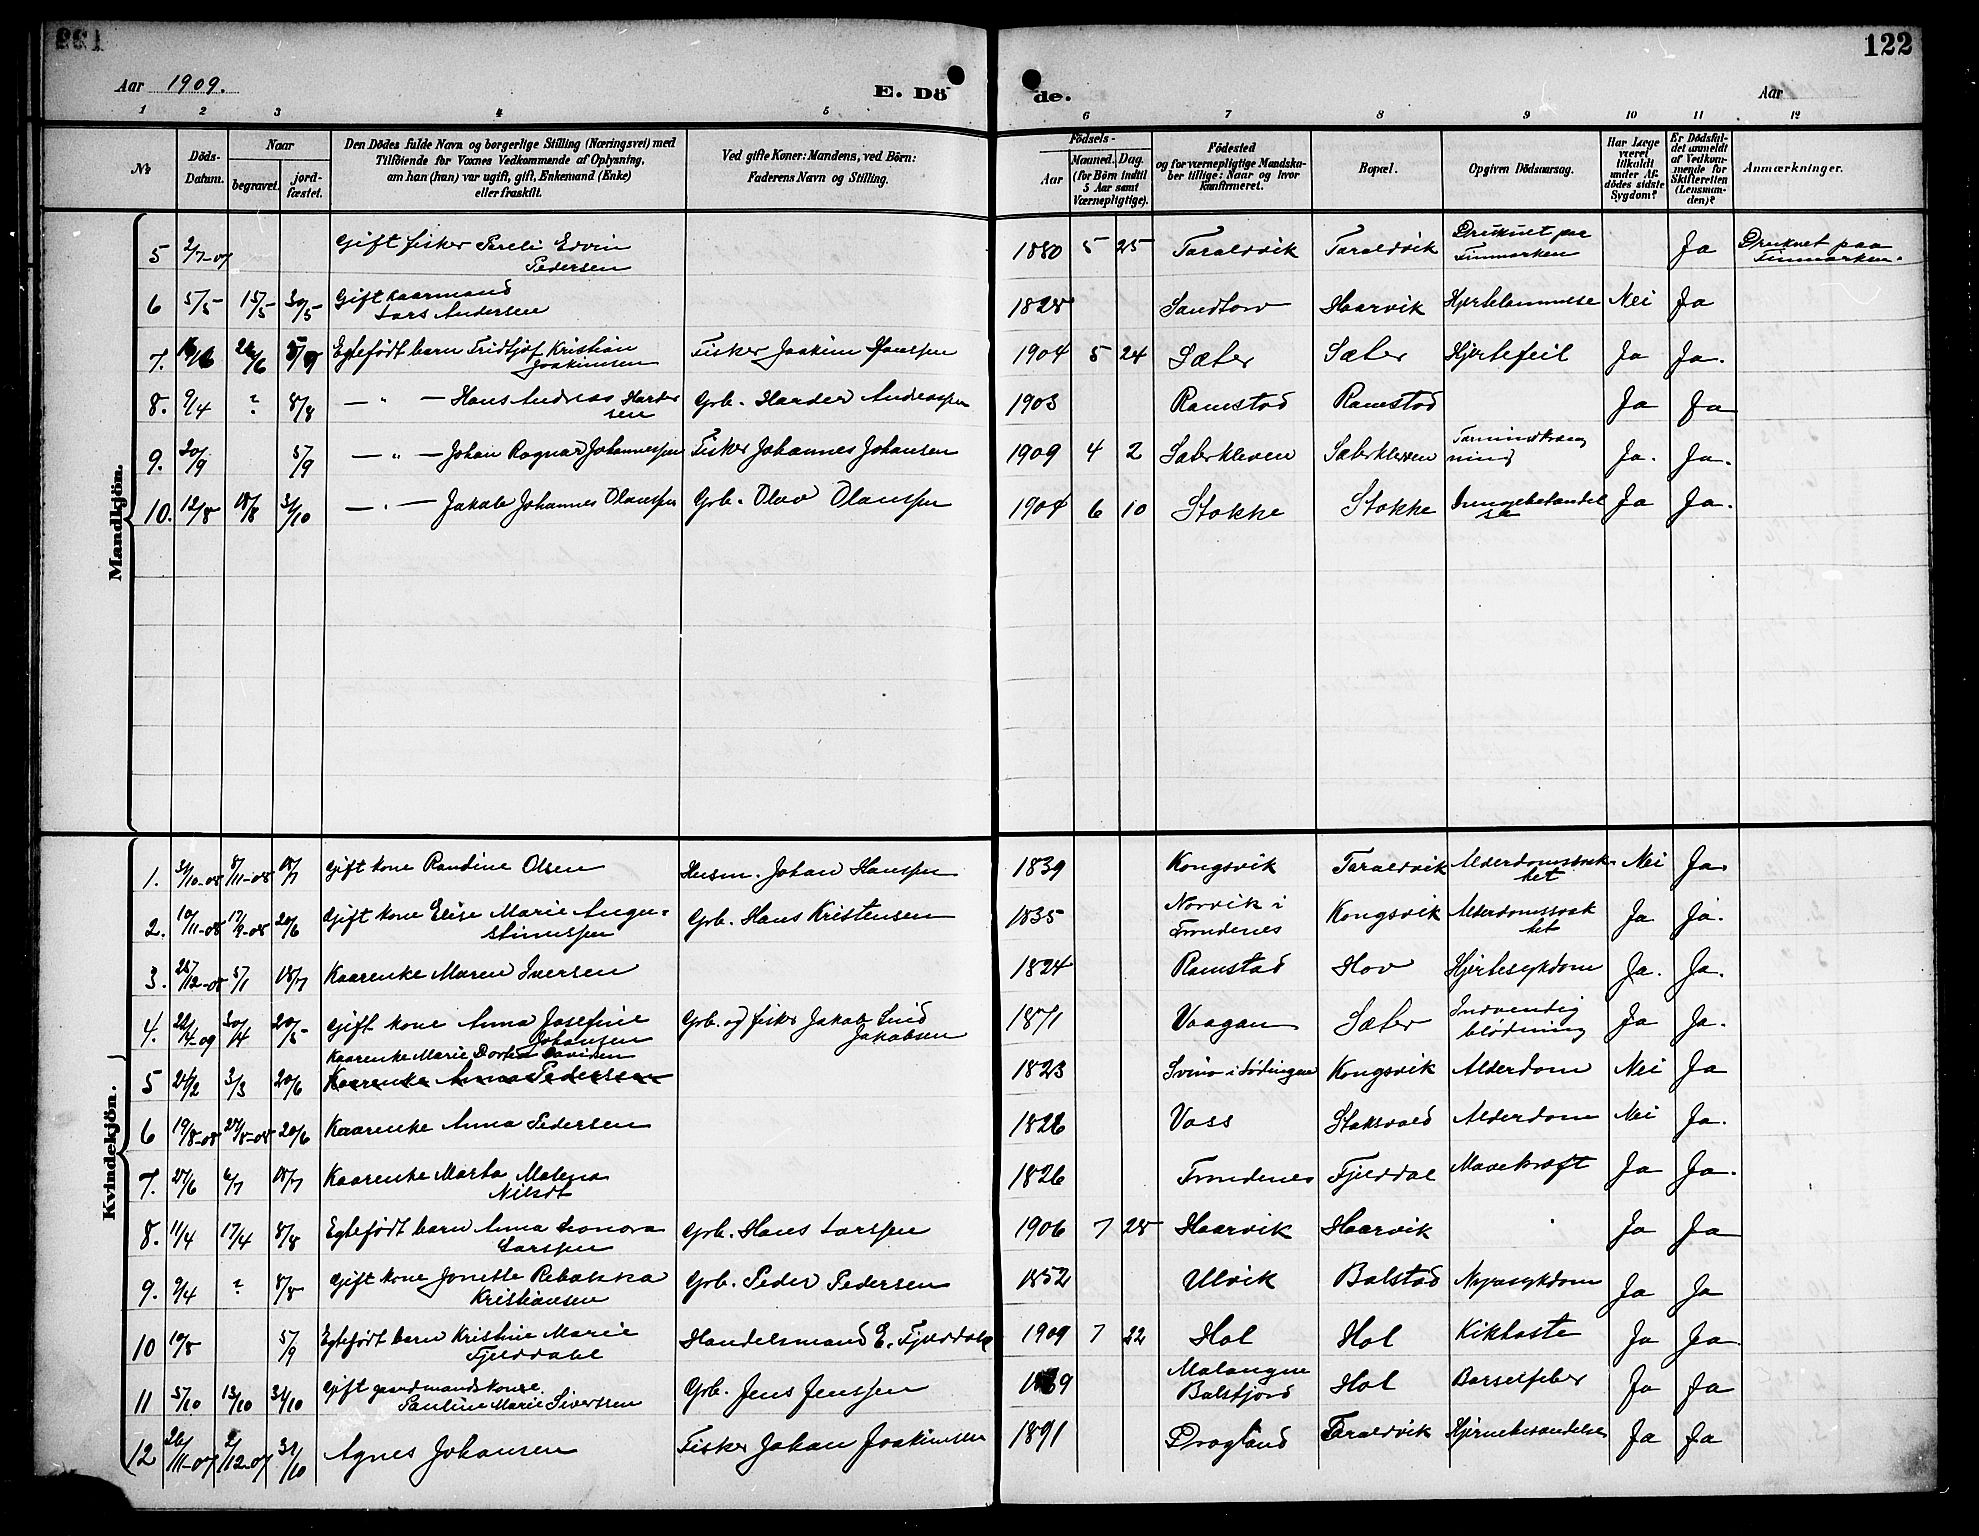 122
Aar 1909.
E. Dö
de.
Aar
1 2 3 4 5 6 7 8 9 10 11 12
No
Döds-
Datum.
Naar
begravet.
jord-
fæstet.
Den Dödes fulde Navn og borgerlige Stilling (Næringsvei) med
Tilföiende for Voxnes Vedkommende af Oplysning,
om han (hun) var ugift, gift, Enkemand (Enke)
eller fraskilt.
Ved gifte Koner: Mandens, ved Börn:
Faderens Navn og Stilling.
Födsels-
Aar
Maaned. Dag.
(for Börn indtil
5 Aar samt
Værnepligtige).
Födested
og for værnepligtige Mandska-
ber tillige: Naar og hvor
konfirmeret.
Bopæl.
Opgiven Dödsaarsag.
Har Læge
været
tilkaldt
under Af-
dödes sidste
Sygdom?
Er Dödsfal-
det anmeldt
af Vedkom-
mende for
Skifteretten
(Lensman-
den)?
Anmærkninger.
Mandkjön.
5 2/7-07 Gift fisker Pareli Edvin
Pedersen 1880 5 25 Taraldvik Taraldvik Druknet paa
Finmarken Ja Druknet paa
Finmarken.
6 5/5 15/5 30/5 Gift kaarmand
Lars Andersen 1828 Sandtorv Haarvik Hjertelammelse Nei Ja
7. Egtefödt barn Fridtjof Kristian
Joakimsen Fisker Joakim Hanssen 1904 5 24 Sæter Sæter Hjertefeil Ja Ja.
8. 9/4 ? 8/8 — " — Hans Andreas Harder
sen Grb. Harder Andreassen 1903 Ramstad Ramstad Ja Ja
9. 20/9 5/9 — " — Johan Ragnar Johannessen Fisker Johannes Johansen 1909 4 2 Sæterkleven Sæterkleven Ja. Ja.
10. 12/8 18/8 31/10 — " — Jakob Johannes Olaussen Grb. Olav Olaussen 1904 6 10 Stokke Stokke Ja Ja.
Kvindekjön.
1. 31/10-08 8/11-08 18/7 Gift kone Randine Olsen Husm. Johan Hanssen 1839 Kongsvik Taraldvik Alderdomssvak-
het Nei Ja.
2. 10/11-08 20/6 Gift kone Elise Marie Augu-
stinussen Grb. Hans Kristensen 1835 Norvik i
Trondenes Kongsvik Alderdomssvak
het Ja Ja.
3. 25/12-08 5/1 18/7 Kaarenke Maren Iversen 1824 Ramstad Hov Hjertesykdom Ja. Ja.
4. 22/4-09 30/4 20/5 Gift kone Anna Josefine
Johansen Grb. og fisker Jakob Lind
Jakobsen 1871 Vaagan Sæter Indvendig
blödning Ja Ja.
Kaarenke Marie Dortea Davidsen
5 24/2 3/3 20/6 Kaarenke Anna Pedersen 1823 Svinö i Lödingen Kongsvik Alderdom Nei Ja
6 19/8-08 27/8-08 20/6 Kaarenke Anna Pedersen 1826 Voss Staksvold Alderdom Nei Ja.
7. 27/6 4/7 18/7 Kaarenke Marta Malena
Nilsdt 1826 Trondenes Fjelddal Mavekræft Ja Ja.
8. 11/4 17/4 8/8 Egtefödt barn Anna Leonora
Larssen Grb. Hans Larssen 1906 7 28 Haarvik Haarvik Ja Ja
9. 9/4 ? 8/8 Gift kone Jonette Rebakka
Kristiansen Grb. Peder Pedersen 1852 Ulvik Balstad Nyresykdom Ja Ja
10 10/8 5/9 Egtefödt barn Kristine Marie
Fjelddahl Handelsmand E. Fjelddahl 1909 7 22 Hol Hol Kikhoste Ja Ja
11 5/10 13/10 31/10 Gift gaardmandskone.
Pauline Marie Sivertsen Grb. Jens Jenssen Malangen
Balsfjord Hol Barselfeber Ja Ja
12 26/11-07 2/12-07 31/10 Agnes Johansen Fisker Johan Joakimsen 1891 Dragland Taraldvik Hjernebetændelse Ja Ja